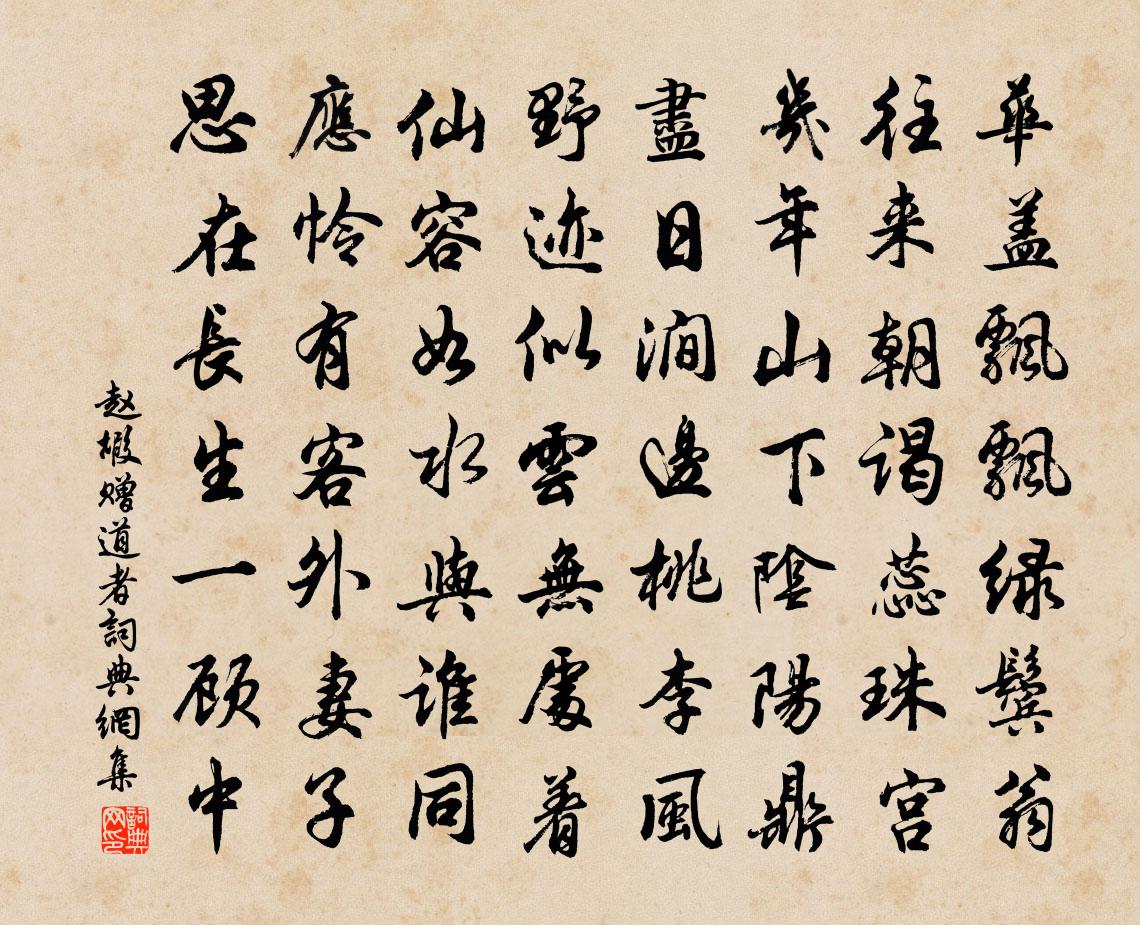 華盖飄飄緑鬢翁
往来朝谒蕊珠宫
幾年山下陰陽鼎
盡日澗邊桃李風
野迹似雲無處着
仙容如水與誰同
應怜有客外妻子
思在長生一顾中
赵嘏赠道者詞典網集
詞典
网印